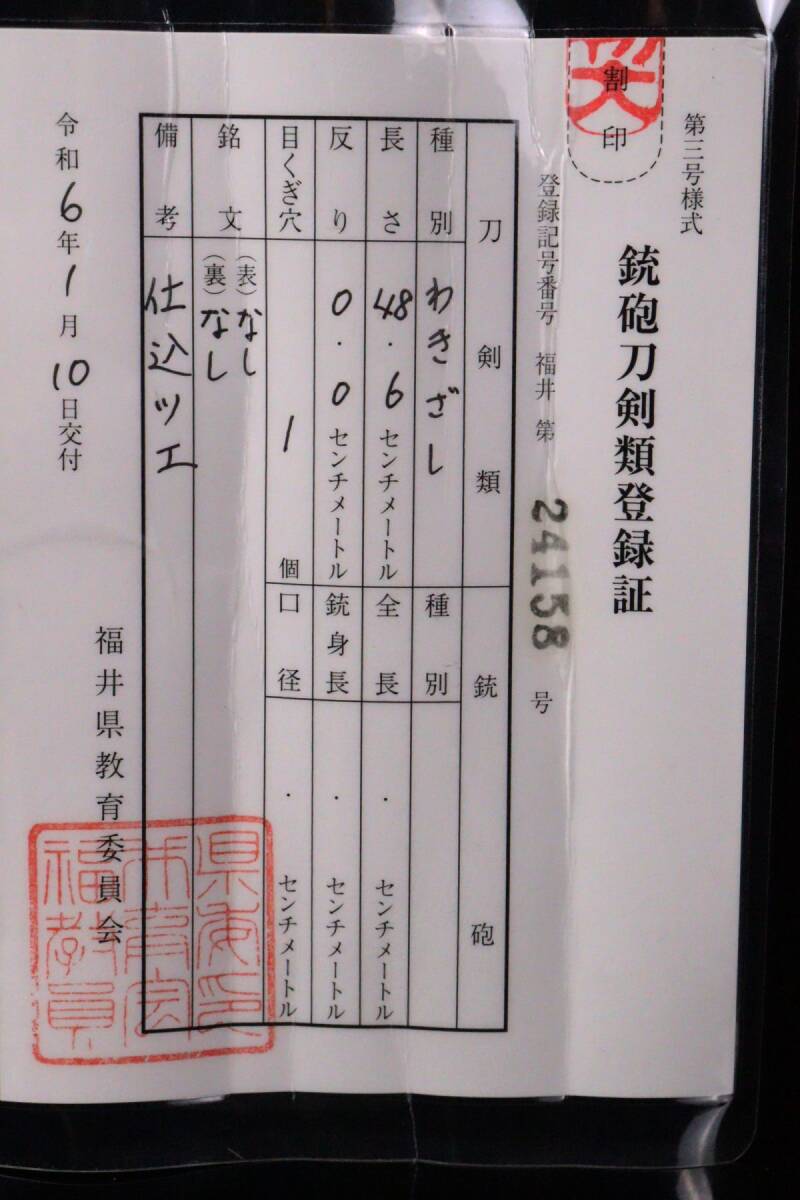 第三号様式
割印
銃砲刀剣類登録証
登録記号番号 福井 第 24158 号
刀剣類
種別 わきざし
長さ 48.6センチメートル
反り 0.0センチメートル
目くぎ穴 1個
銘文 (表)なし
(裏)なし
備考 仕込ツエ
銃砲
種別
全長 .センチメートル
銃身長 .センチメートル
口径 .センチメートル
令和6年1月10日交付
福井県教育委員会